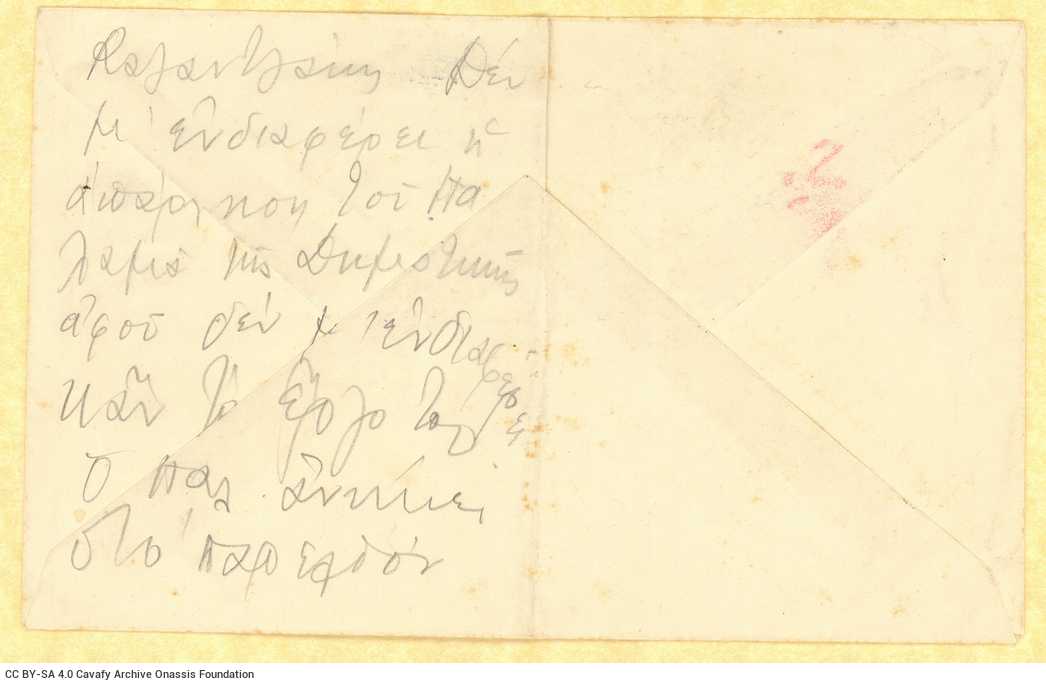 Καζαντζάκης Δέν
μ' ἐνδιαφέρει ἡ
ἀπάρνηση τοῦ Πα
λαμᾶ τῆς Δημοτικῆς
ἀφοῦ δέν μ' ἐνδιαφέρει
κἄν τό ἔργο του
Ὁ Παλ. ἀνήκει
στό παρελθόν
CC BY-SA 4.0 Cavafy Archive Onassis Foundation